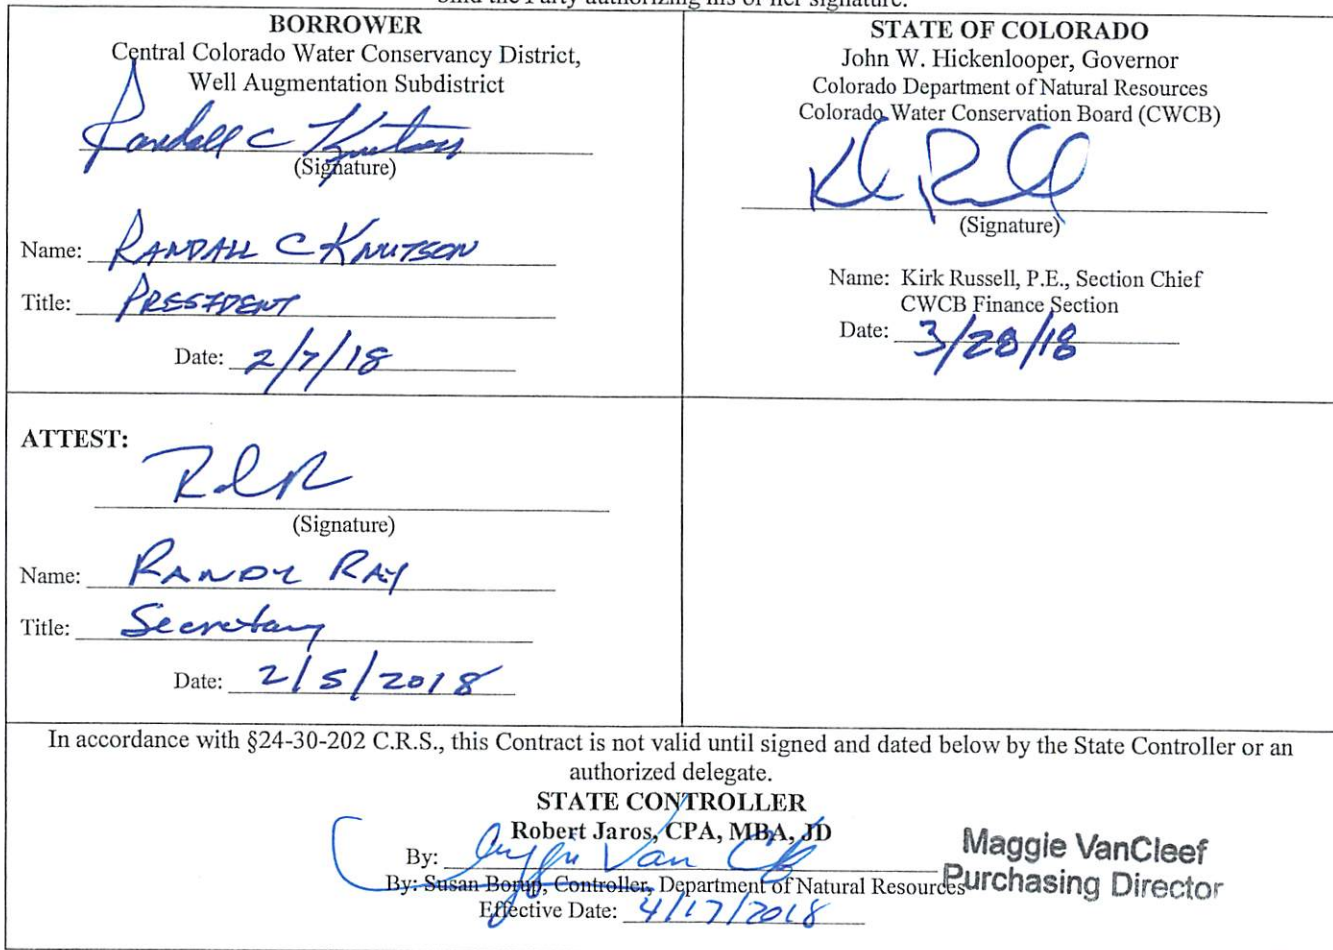 bind the Party authorizing his or her signature.
BORROWER
Central Colorado Water Conservancy District,
Well Augmentation Subdistrict
Randall C Knutson
(Signature)
Name: RANDALL C KNUTSON
Title: PRESIDENT
Date: 2/7/18
STATE OF COLORADO
John W. Hickenlooper, Governor
Colorado Department of Natural Resources
Colorado Water Conservation Board (CWCB)
(Signature)
Name: Kirk Russell, P.E., Section Chief
CWCB Finance Section
Date: 3/28/18
ATTEST:
(Signature)
Name: RANDY RAY
Title: Secretary
Date: 2/5/2018
In accordance with §24-30-202 C.R.S., this Contract is not valid until signed and dated below by the State Controller or an
authorized delegate.
STATE CONTROLLER
Robert Jaros, CPA, MBA, JD
By:
By: Susan Borup, Controller, Department of Natural Resources
Effective Date: 4/17/2018
Maggie VanCleef
Purchasing Director